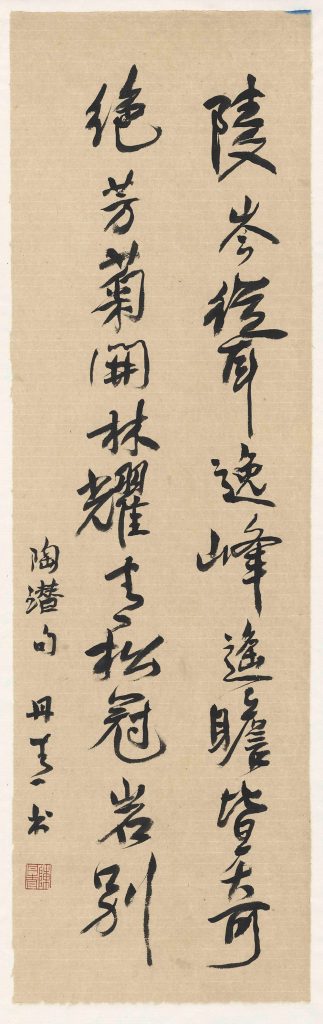 陵岑聳逸峰遙瞻皆奇
絶芳菊開林耀青松冠岩别
陶潜句 丹青书